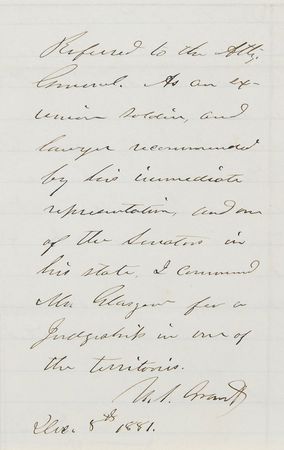 Referred to the Atty.
General. As an ex-
union soldier, and
lawyer recommended
by his immediate
representative, and one
of the Senators in
his state, I commend
Mr. Glasgow for a
Judgeship in one of
the territories.
U. S. Grant
Dec. 8th 1881.